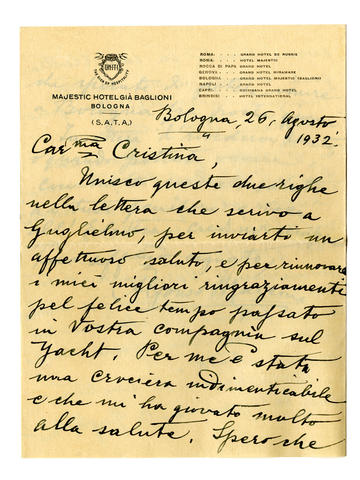 UNITI
MAJESTIC HOTEL GIÀ BAGLIONI
BOLOGNA
(S.A.T.A.)
ROMA: . . . . GRAND HOTEL DE RUSSIE
ROMA: . . . . HOTEL MAJESTIC
ROCCA DI PAPA GRAND HOTEL
GENOVA: . . . GRAND HOTEL MIRAMARE
BOLOGNA: . . . GRAND HOTEL MAJESTIC (BAGLIONI)
NAPOLI: . . . GRAND HOTEL
CAPRI: . . . . QUISISANA GRAND HOTEL
BRINDISI: . . HOTEL INTERNATIONAL
Bologna, 26, Agosto
1932.
Car.ma Cristina,
Unisco queste due righe
nella lettera che scrivo a
Guglielmo, per inviarti un
affettuoso saluto, e per rinnovare
i miei migliori ringraziamenti
pel felice tempo passato
in Vostra compagnia sul
Yacht. Per me è stata
una crociera indimenticabile
e che mi ha giovato molto
alla salute. Spero che